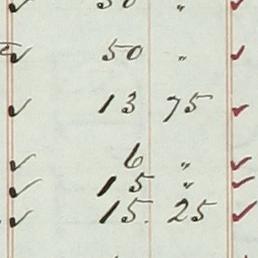 ✓ 50 " ✓
✓ 50 " ✓
✓ 13 75 ✓
✓ 6 " ✓
✓ 15 " ✓
✓ 15. 25 ✓